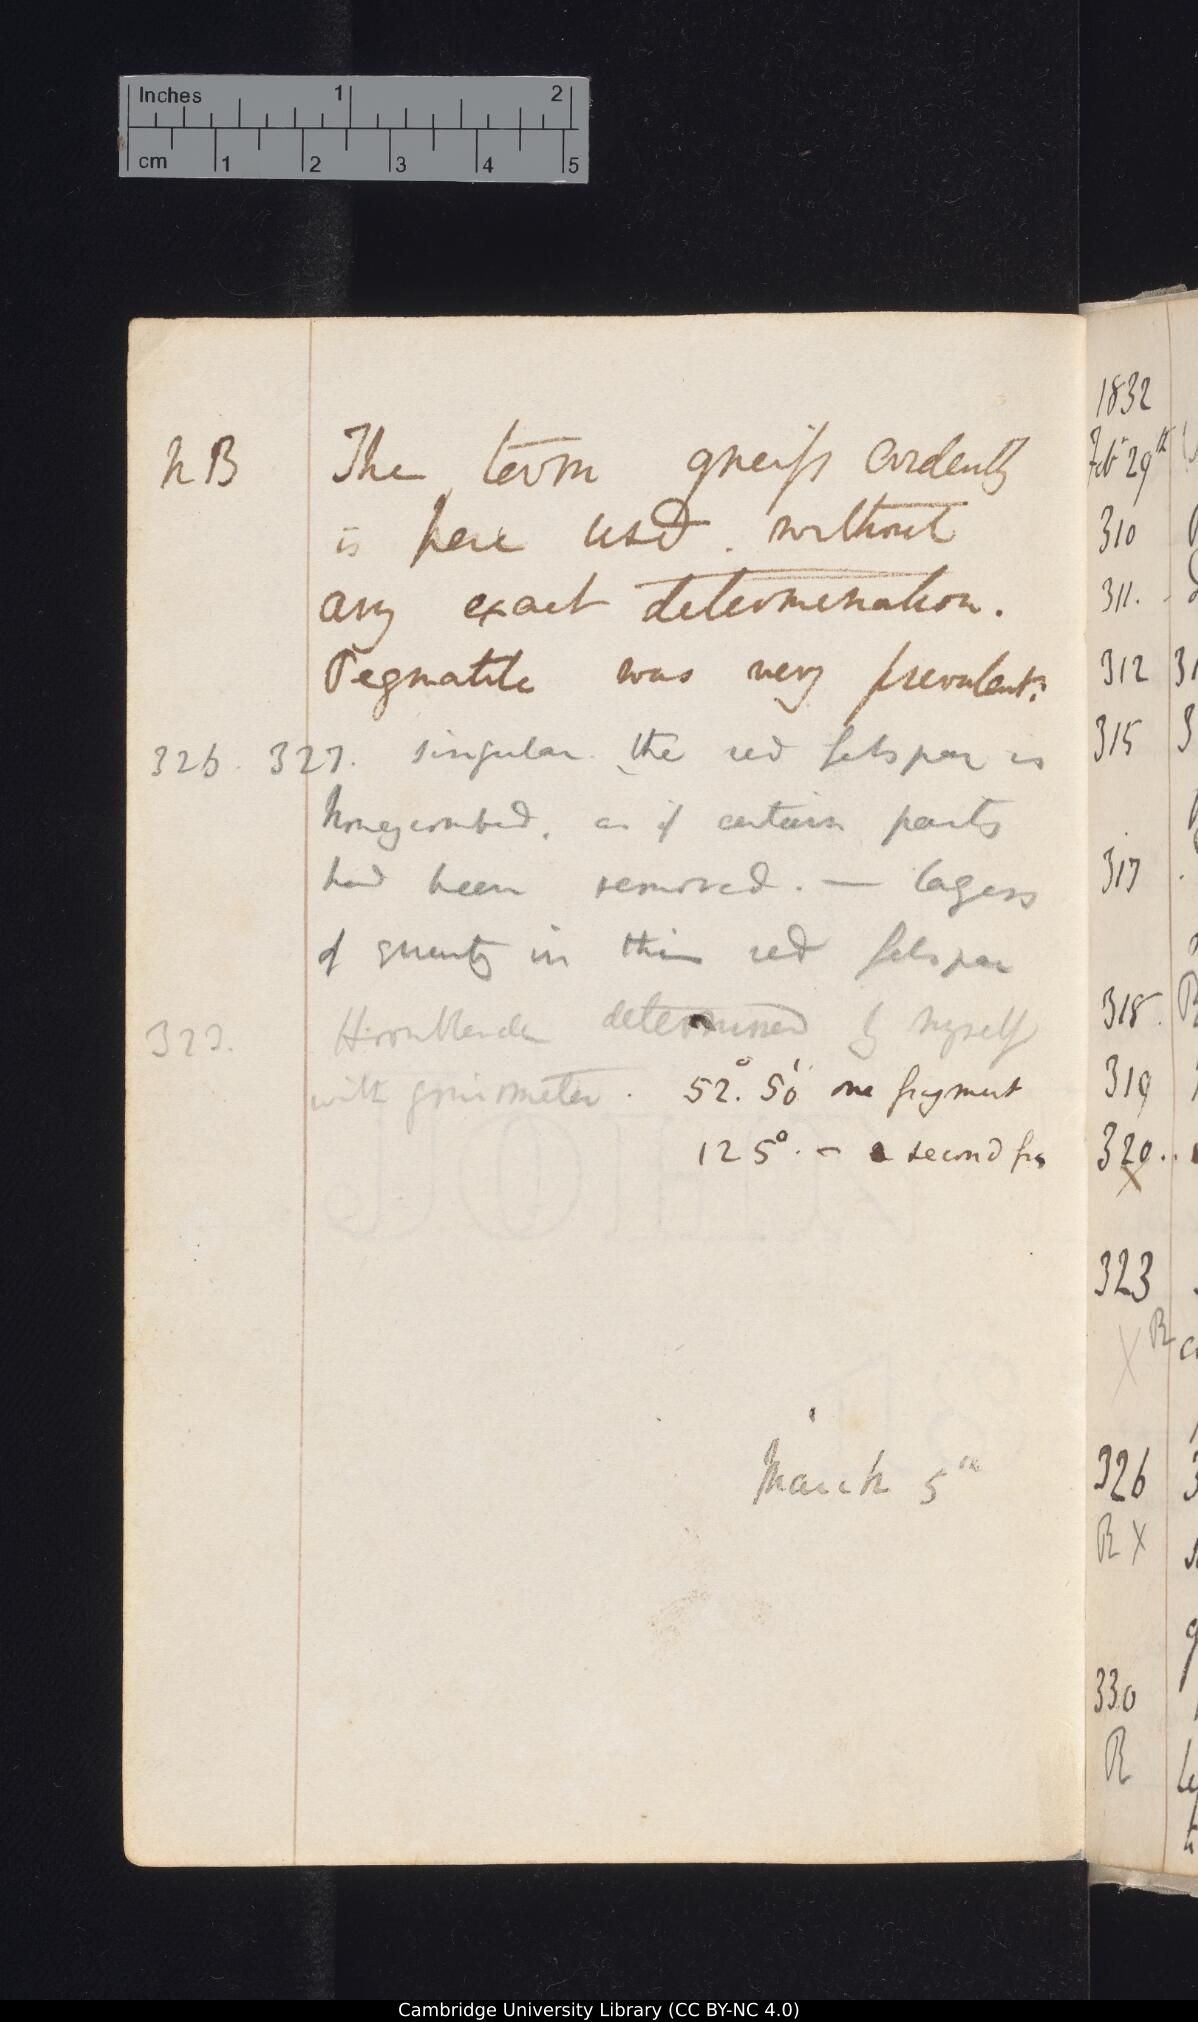 Inches 1 2
cm 1 2 3 4 5
NB The term gneiss evidently
is here used. without
any exact determination.
Pegmatite was very prevalent?
326. 327. singular. the red felspar is
honeycombed, as if certain parts
had been removed. — layers
of quartz in this red felspar
323. Hornblende determined by myself
with goniometer. 52°. 50' one fragment
125°. — a second fra
March 5th
1832
Feb 29th
310
311.
312 31
315 3
317
318. R
319
320..
X
323
X R
326 3
R X
330
R
Cambridge University Library (CC BY-NC 4.0)